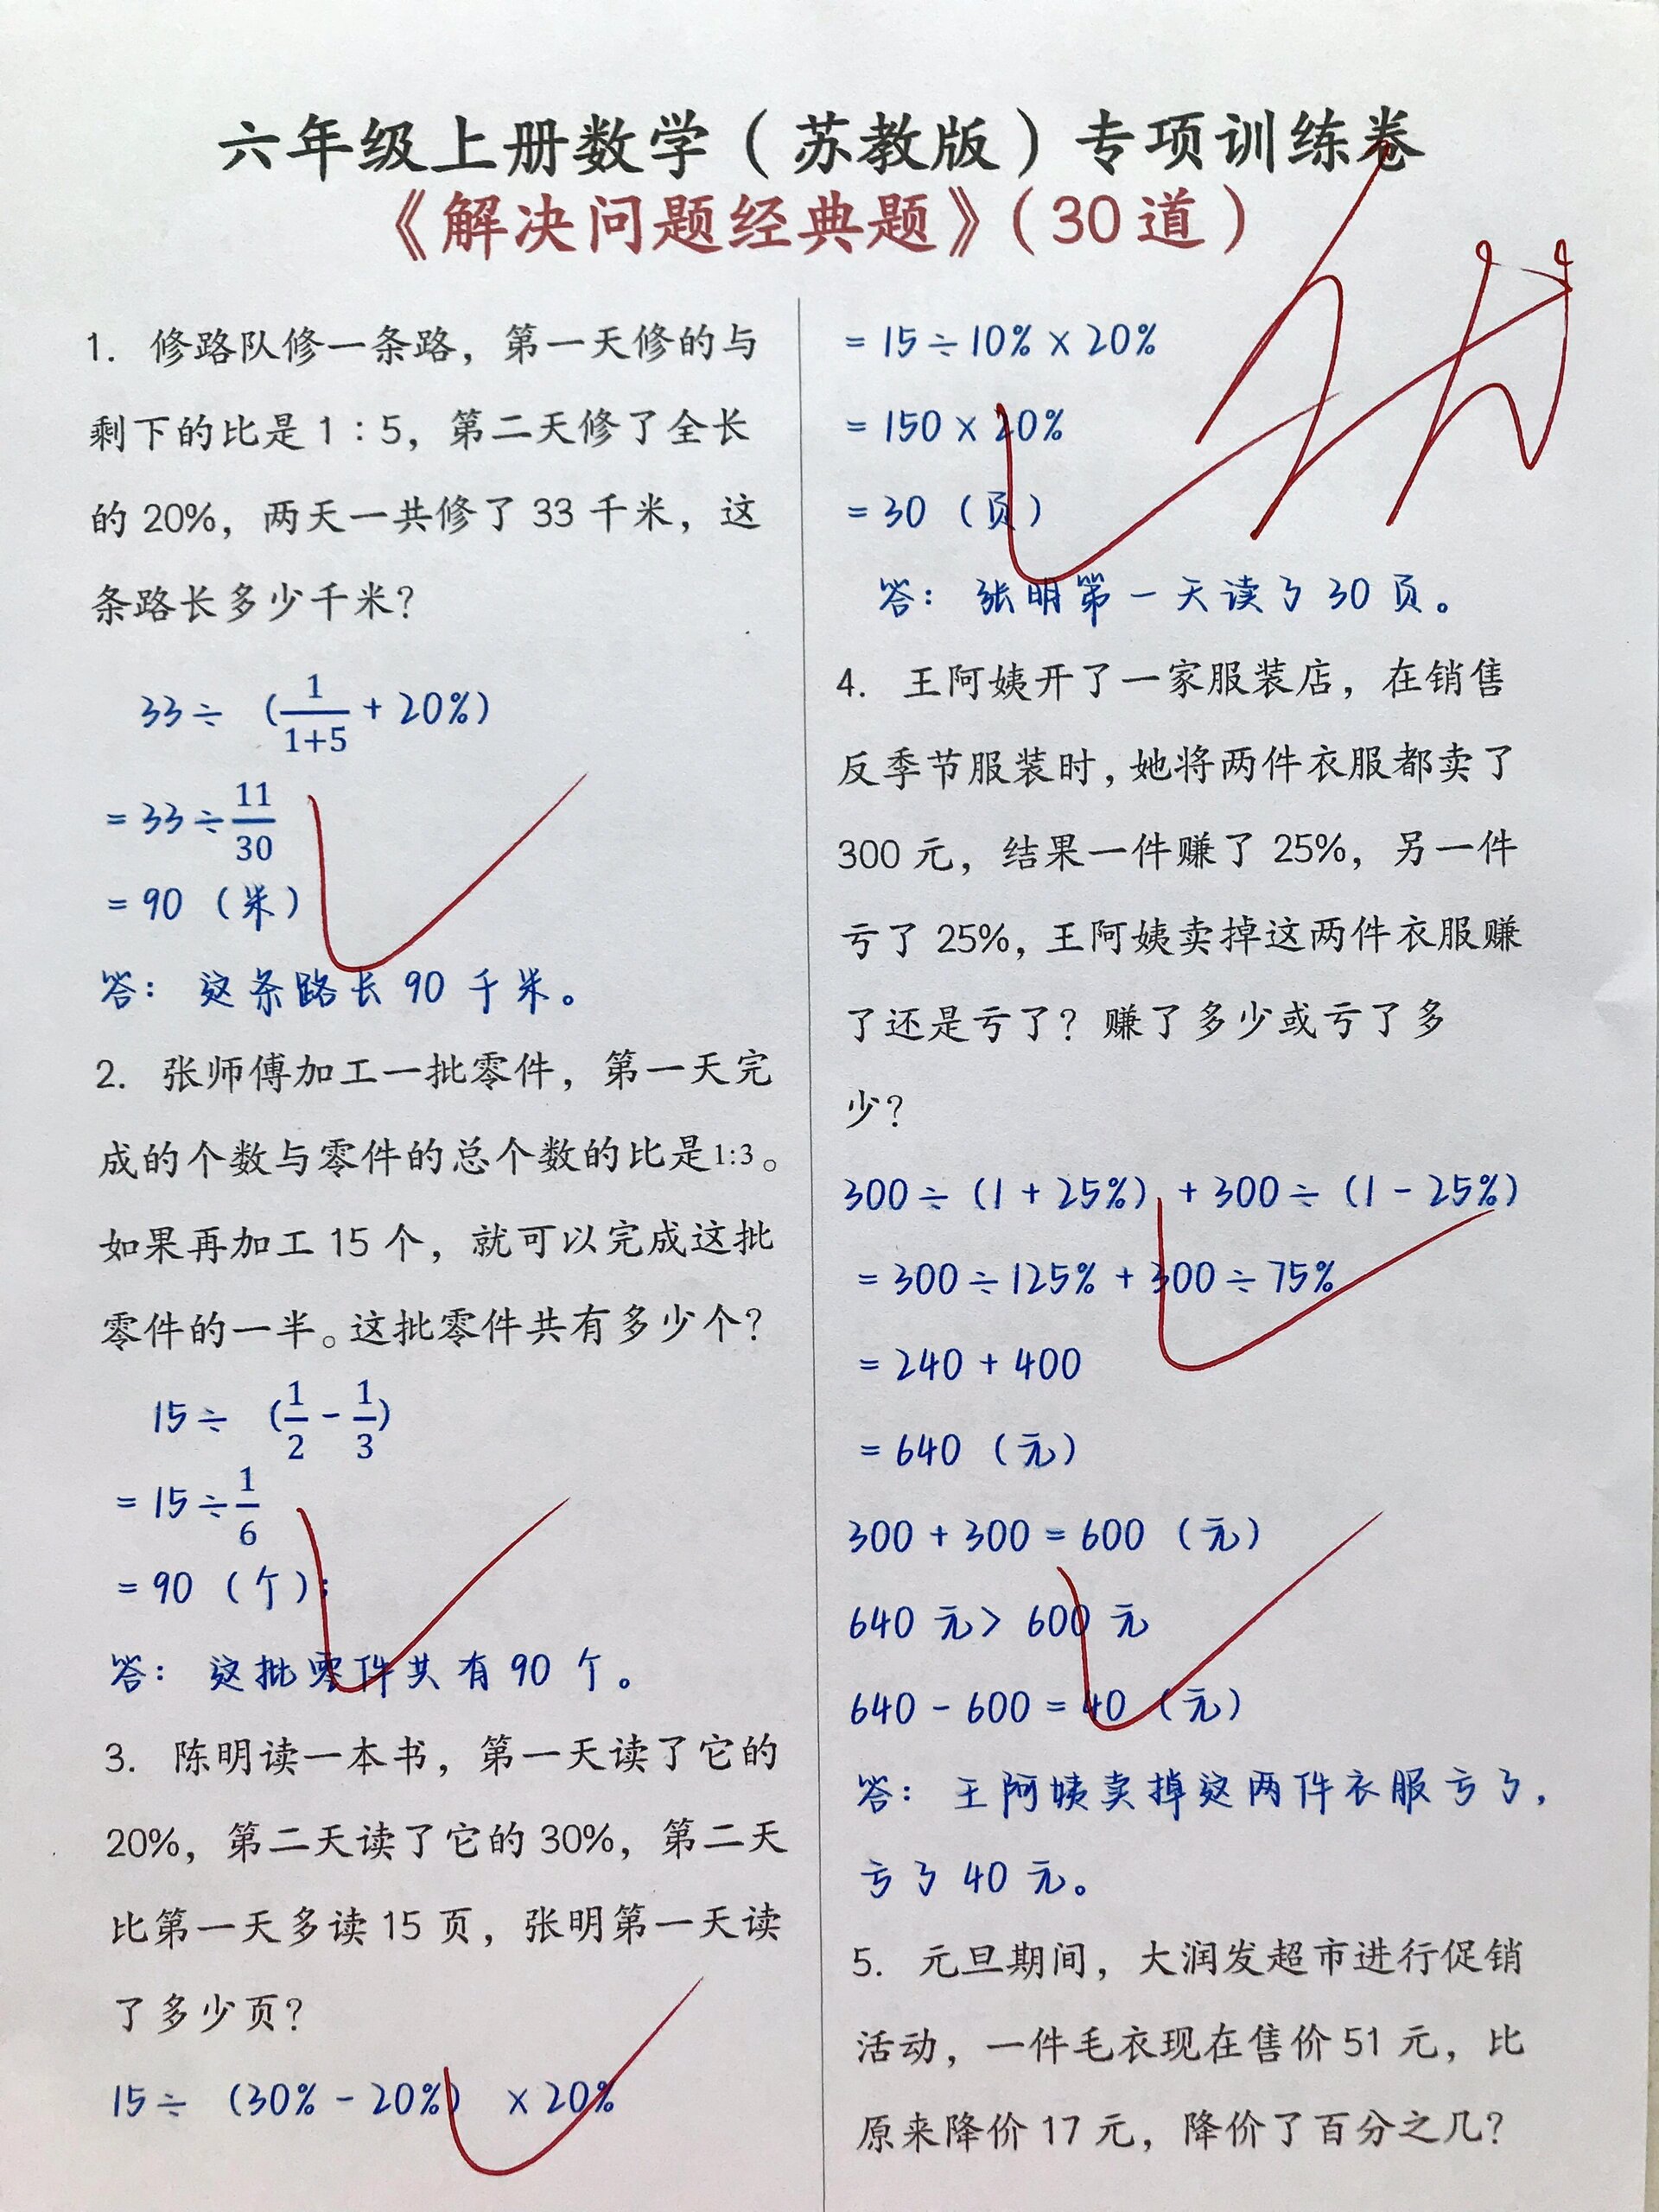 六年级上册数学（苏教版）专项训练卷
《解决问题经典题》（30道）
1. 修路队修一条路，第一天修的与
剩下的比是1：5，第二天修了全长
的20%，两天一共修了33千米，这
条路长多少千米？
33÷（1/(1+5)+20%）
=33÷11/30
=90（米）
答：这条路长90千米。
2. 张师傅加工一批零件，第一天完
成的个数与零件的总个数的比是1:3。
如果再加工15个，就可以完成这批
零件的一半。这批零件共有多少个？
15÷（1/2-1/3）
=15÷1/6
=90（个）；
答：这批零件共有90个。
3. 陈明读一本书，第一天读了它的
20%，第二天读了它的30%，第二天
比第一天多读15页，张明第一天读
了多少页？
15÷（30%-20%）×20%
=15÷10%×20%
=150×20%
=30（页）
答：张明第一天读了30页。
4. 王阿姨开了一家服装店，在销售
反季节服装时，她将两件衣服都卖了
300元，结果一件赚了25%，另一件
亏了25%，王阿姨卖掉这两件衣服赚
了还是亏了？赚了多少或亏了多
少？
300÷（1+25%）+300÷（1-25%）
=300÷125%+300÷75%
=240+400
=640（元）
300+300=600（元）
640元>600元
640-600=40（元）
答：王阿姨卖掉这两件衣服亏了，
亏了40元。
5. 元旦期间，大润发超市进行促销
活动，一件毛衣现在售价51元，比
原来降价17元，降价了百分之几？